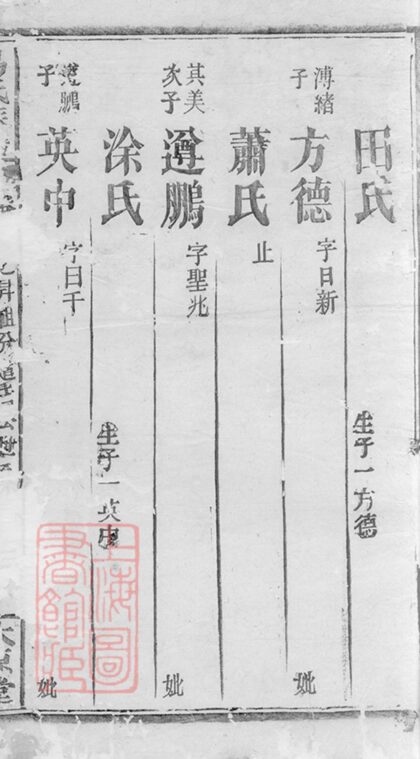 田氏 生子一方德
溥緒子 方德 字日新 妣
蕭氏 止
其美次子 遵鵬 字聖兆 妣
涂氏 生子一英申
遵鵬子 英申 字日千 妣
太原堂
上海圖書館藏